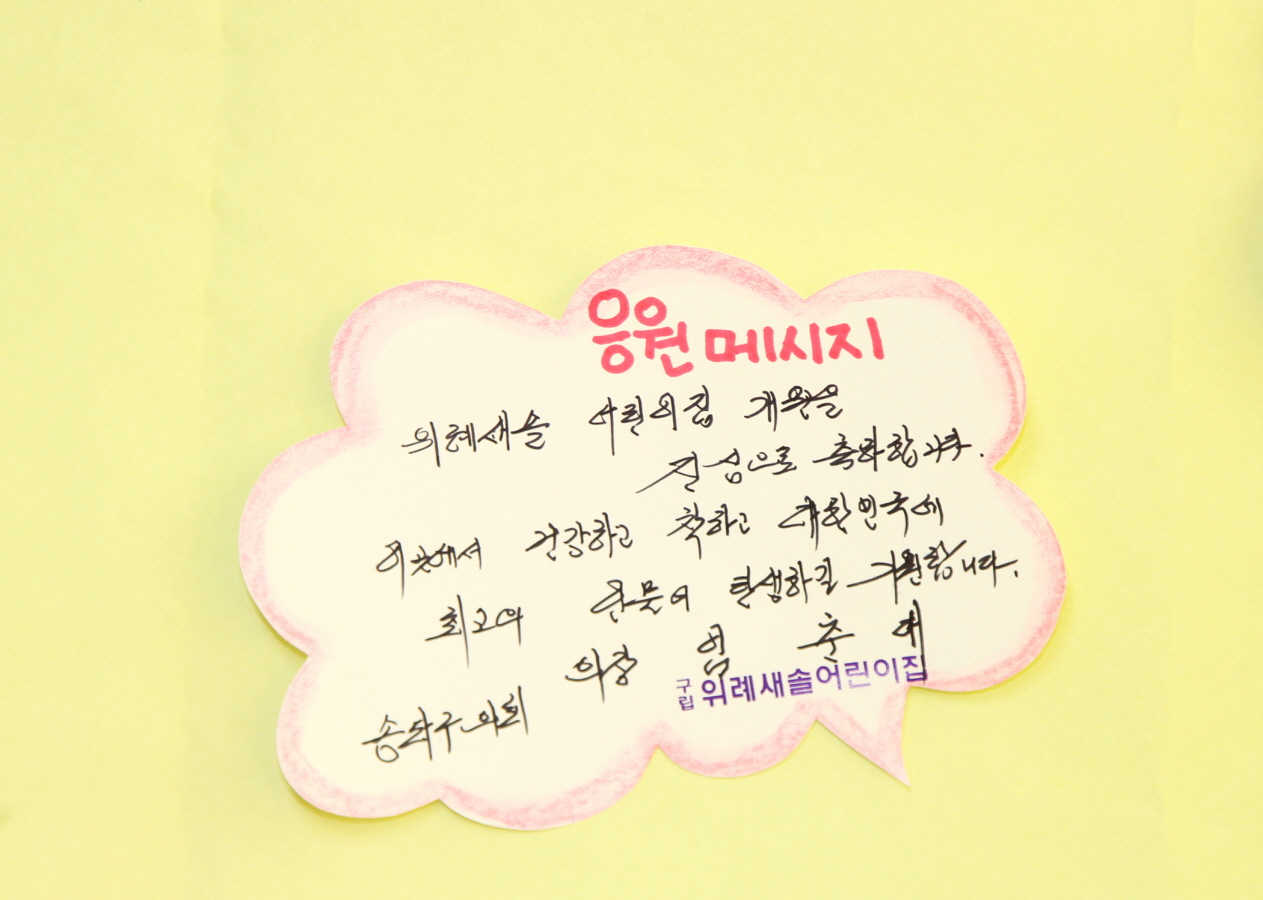 응원 메시지
위례새솔 어린이집 개원을
진심으로 축하합니다.
이곳에서 건강하고 착하고 대한민국에
최고의 큰 이 탄생하길 기원합니다.
송파구의회 의장 춘
구립 위례새솔어린이집